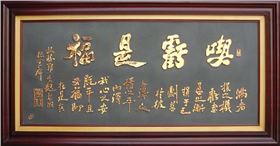 喫虧是福
滿者
損之機
虧者
盈之漸
損于己
則益
于彼
外得
人情
之平
內得
我心之安
既平且
安福即
在是矣